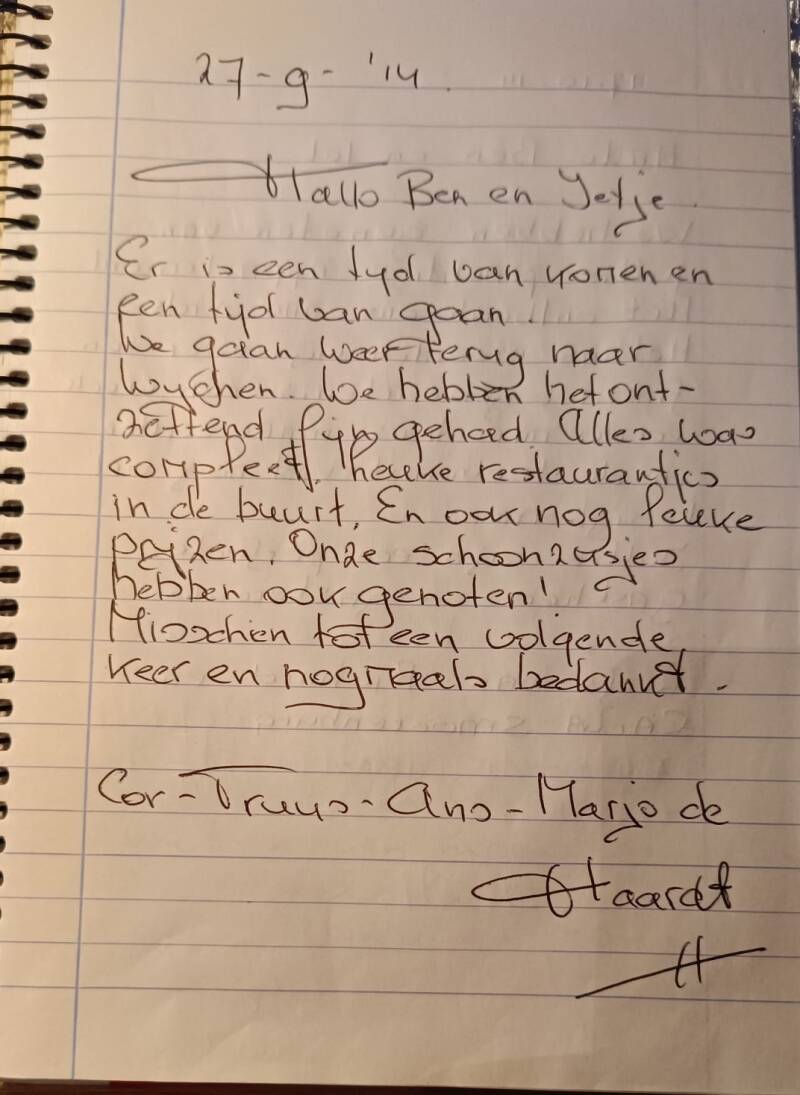 27-9-'14.
Hallo Ben en Yetje.
Er is een tyd van komen en
een tijd van gaan.
We gaan weer terug naar
Wychen. We hebben het ont-
zettend fijn gehad. Alles was
compleet, leuke restaurantjes
in de buurt, En ook nog leuke
prijzen. Onze schoonzusjes
hebben ook genoten!
Misschien tot een volgende
keer en nogmaals bedankt.
Cor-Truus-Ans-Marjo de
Haardt